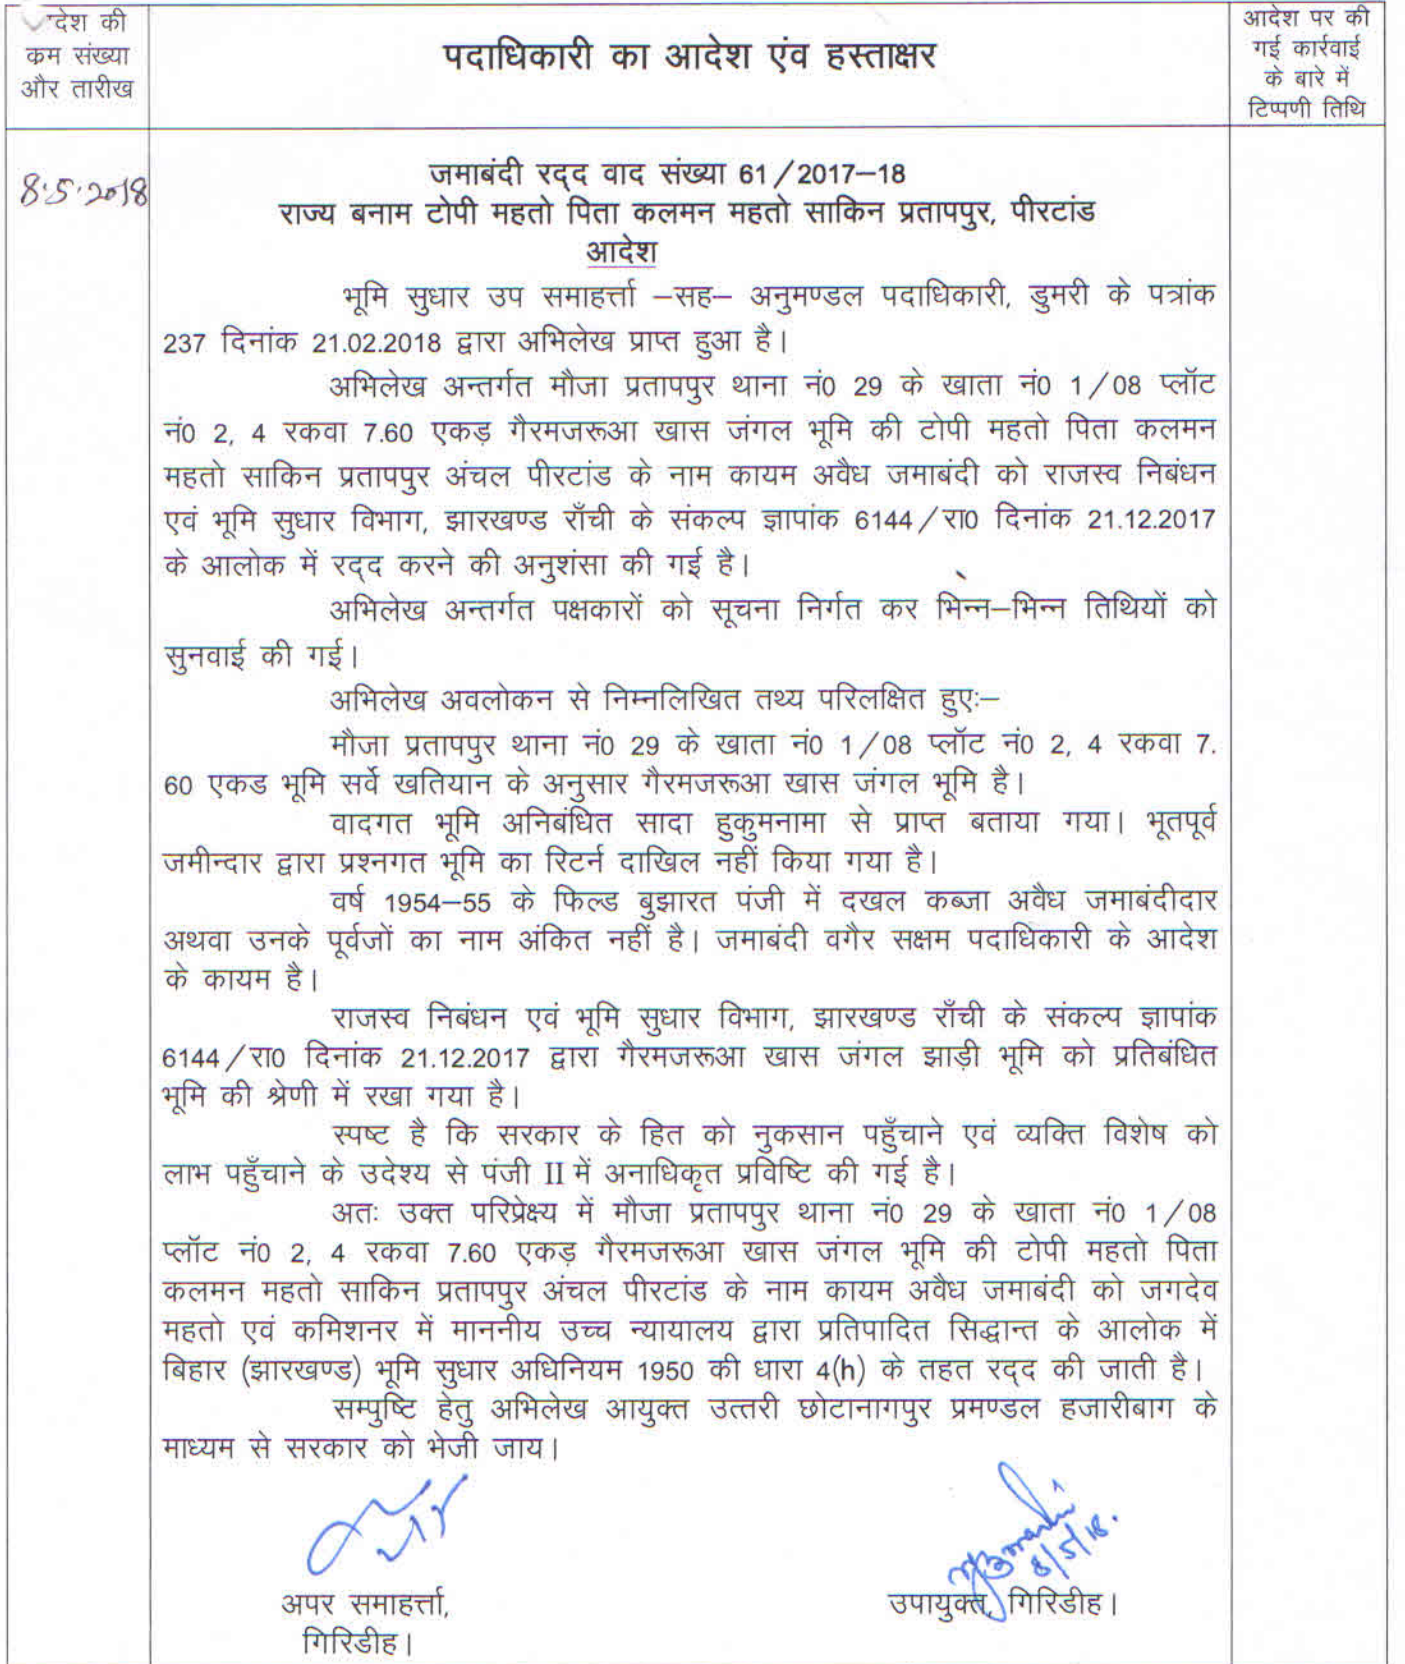 देश की
कम संख्या
और तारीख
पदाधिकारी का आदेश एंव हस्ताक्षर
आदेश पर की
गई कार्रवाई
के बारे में
टिप्पणी तिथि
8.5.2018
जमाबंदी रद्द वाद संख्या 61/2017–18
राज्य बनाम टोपी महतो पिता कलमन महतो साकिन प्रतापपुर, पीरटांड
आदेश
भूमि सुधार उप समाहर्त्ता –सह– अनुमण्डल पदाधिकारी, डुमरी के पत्रांक
237 दिनांक 21.02.2018 द्वारा अभिलेख प्राप्त हुआ है।
अभिलेख अन्तर्गत मौजा प्रतापपुर थाना नं0 29 के खाता नं0 1/08 प्लॉट
नं0 2, 4 रकवा 7.60 एकड़ गैरमजरूआ खास जंगल भूमि की टोपी महतो पिता कलमन
महतो साकिन प्रतापपुर अंचल पीरटांड के नाम कायम अवैध जमाबंदी को राजस्व निबंधन
एवं भूमि सुधार विभाग, झारखण्ड राँची के संकल्प ज्ञापांक 6144/रा0 दिनांक 21.12.2017
के आलोक में रद्द करने की अनुशंसा की गई है।
अभिलेख अन्तर्गत पक्षकारों को सूचना निर्गत कर भिन्न–भिन्न तिथियों को
सुनवाई की गई।
अभिलेख अवलोकन से निम्नलिखित तथ्य परिलक्षित हुएः–
मौजा प्रतापपुर थाना नं0 29 के खाता नं0 1/08 प्लॉट नं0 2, 4 रकवा 7.
60 एकड भूमि सर्वे खतियान के अनुसार गैरमजरूआ खास जंगल भूमि है।
वादगत भूमि अनिबंधित सादा हुकुमनामा से प्राप्त बताया गया। भूतपूर्व
जमीन्दार द्वारा प्रश्नगत भूमि का रिटर्न दाखिल नहीं किया गया है।
वर्ष 1954–55 के फिल्ड बुझारत पंजी में दखल कब्जा अवैध जमाबंदीदार
अथवा उनके पूर्वजों का नाम अंकित नहीं है। जमाबंदी वगैर सक्षम पदाधिकारी के आदेश
के कायम है।
राजस्व निबंधन एवं भूमि सुधार विभाग, झारखण्ड राँची के संकल्प ज्ञापांक
6144/रा0 दिनांक 21.12.2017 द्वारा गैरमजरूआ खास जंगल झाड़ी भूमि को प्रतिबंधित
भूमि की श्रेणी में रखा गया है।
स्पष्ट है कि सरकार के हित को नुकसान पहुँचाने एवं व्यक्ति विशेष को
लाभ पहुँचाने के उदेश्य से पंजी II में अनाधिकृत प्रविष्टि की गई है।
अतः उक्त परिप्रेक्ष्य में मौजा प्रतापपुर थाना नं0 29 के खाता नं0 1/08
प्लॉट नं0 2, 4 रकवा 7.60 एकड़ गैरमजरूआ खास जंगल भूमि की टोपी महतो पिता
कलमन महतो साकिन प्रतापपुर अंचल पीरटांड के नाम कायम अवैध जमाबंदी को जगदेव
महतो एवं कमिशनर में माननीय उच्च न्यायालय द्वारा प्रतिपादित सिद्धान्त के आलोक में
बिहार (झारखण्ड) भूमि सुधार अधिनियम 1950 की धारा 4(h) के तहत रद्द की जाती है।
सम्पुष्टि हेतु अभिलेख आयुक्त उत्तरी छोटानागपुर प्रमण्डल हजारीबाग के
माध्यम से सरकार को भेजी जाय।
8/5/18.
अपर समाहर्त्ता,
गिरिडीह।
उपायुक्त, गिरिडीह।